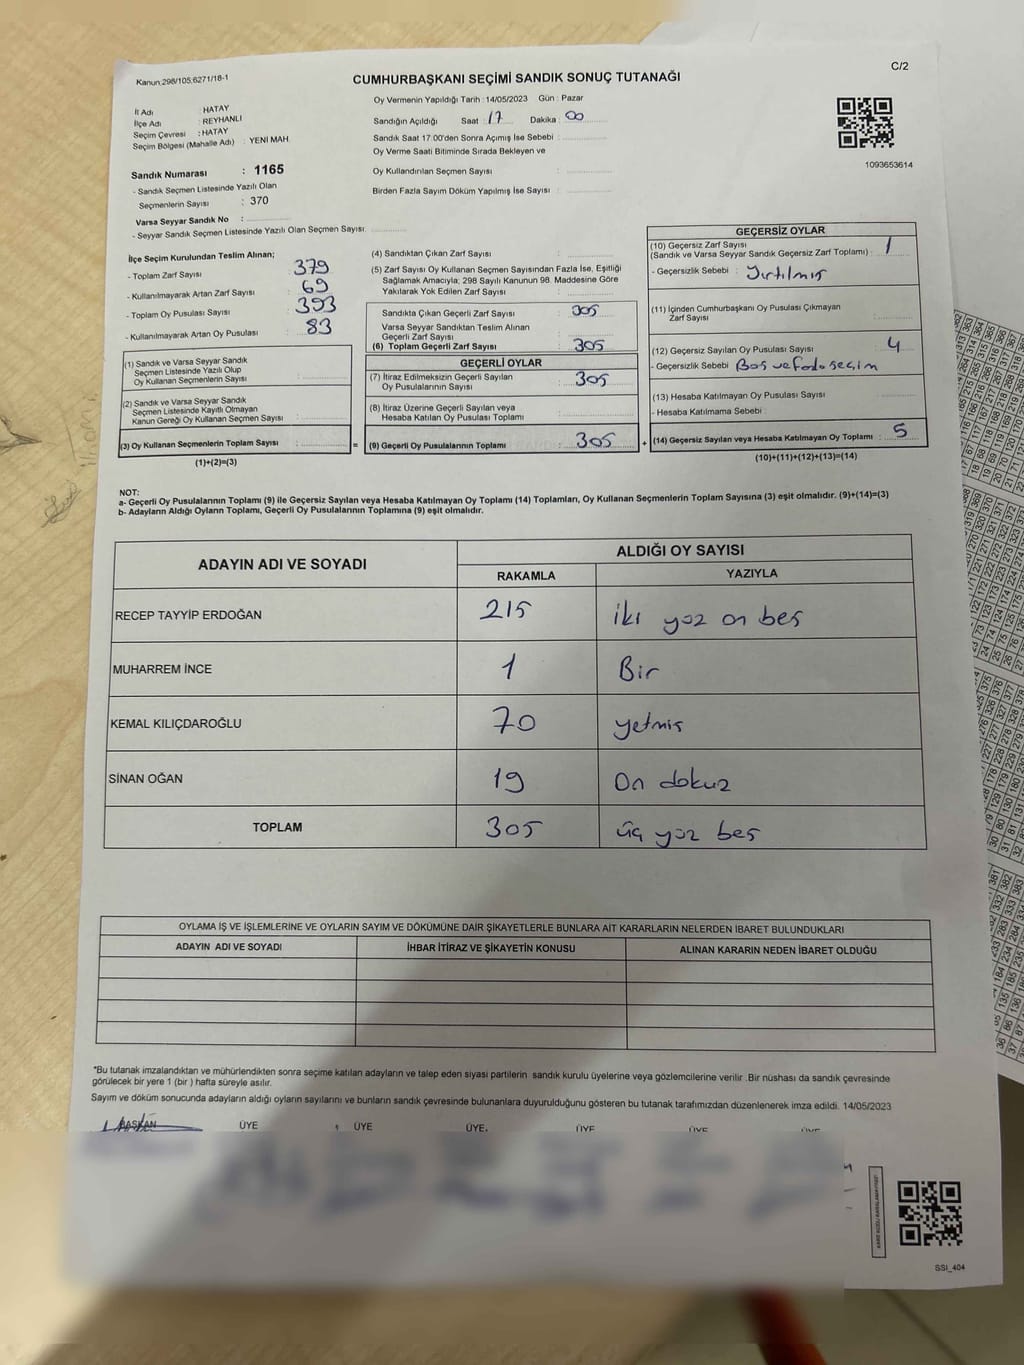 Kanun:298/105.6271/18-1
CUMHURBAŞKANI SEÇİMİ SANDIK SONUÇ TUTANAĞI
C/2
İl Adı : HATAY
İlçe Adı : REYHANLI
Seçim Çevresi : HATAY
Seçim Bölgesi (Mahalle Adı) : YENİ MAH.
Oy Vermenin Yapıldığı Tarih :14/05/2023 Gün : Pazar
Sandığın Açıldığı Saat : 17 Dakika : 00
Sandık Saat 17.00'den Sonra Açımış İse Sebebi :
Oy Verme Saati Bitiminde Sırada Bekleyen ve
Oy Kullandırılan Seçmen Sayısı :
Birden Fazla Sayım Döküm Yapılmış İse Sayısı :
1093653614
Sandık Numarası : 1165
- Sandık Seçmen Listesinde Yazılı Olan
Seçmenlerin Sayısı : 370
Varsa Seyyar Sandık No :
- Seyyar Sandık Seçmen Listesinde Yazılı Olan Seçmen Sayısı:
İlçe Seçim Kurulundan Teslim Alınan;
- Toplam Zarf Sayısı : 379
- Kullanılmayarak Artan Zarf Sayısı : 69
- Toplam Oy Pusulası Sayısı : 393
- Kullanılmayarak Artan Oy Pusulası : 83
(1) Sandık ve Varsa Seyyar Sandık
Seçmen Listesinde Yazılı Olup
Oy Kullanan Seçmenlerin Sayısı :
(2) Sandık ve Varsa Seyyar Sandık
Seçmen Listesinde Kayıtlı Olmayan
Kanun Gereği Oy Kullanan Seçmen Sayısı :
(3) Oy Kullanan Seçmenlerin Toplam Sayısı : =
(1)+(2)=(3)
(4) Sandıktan Çıkan Zarf Sayısı :
(5) Zarf Sayısı Oy Kullanan Seçmen Sayısından Fazla İse, Eşitliği
Sağlamak Amacıyla; 298 Sayılı Kanunun 98. Maddesine Göre
Yakılarak Yok Edilen Zarf Sayısı :
Sandıkta Çıkan Geçerli Zarf Sayısı : 305
Varsa Seyyar Sandıktan Teslim Alınan
Geçerli Zarf Sayısı :
(6) Toplam Geçerli Zarf Sayısı : 305
GEÇERLİ OYLAR
(7) İtiraz Edilmeksizin Geçerli Sayılan
Oy Pusulalarının Sayısı : 305
(8) İtiraz Üzerine Geçerli Sayılan veya
Hesaba Katılan Oy Pusulası Toplamı :
(9) Geçerli Oy Pusulalarının Toplamı : 305 +
GEÇERSİZ OYLAR
(10) Geçersiz Zarf Sayısı
(Sandık ve Varsa Seyyar Sandık Geçersiz Zarf Toplamı) : 1
- Geçersizlik Sebebi : Yırtılmış
(11) İçinden Cumhurbaşkanı Oy Pusulası Çıkmayan
Zarf Sayısı :
(12) Geçersiz Sayılan Oy Pusulası Sayısı : 4
- Geçersizlik Sebebi : Boş ve Fado seçim
(13) Hesaba Katılmayan Oy Pusulası Sayısı :
- Hesaba Katılmama Sebebi :
(14) Geçersiz Sayılan veya Hesaba Katılmayan Oy Toplamı : 5
(10)+(11)+(12)+(13)=(14)
NOT:
a- Geçerli Oy Pusulalarının Toplamı (9) ile Geçersiz Sayılan veya Hesaba Katılmayan Oy Toplamı (14) Toplamları, Oy Kullanan Seçmenlerin Toplam Sayısına (3) eşit olmalıdır. (9)+(14)=(3)
b- Adayların Aldığı Oyların Toplamı, Geçerli Oy Pusulalarının Toplamına (9) eşit olmalıdır.
ADAYIN ADI VE SOYADI
ALDIĞI OY SAYISI
RAKAMLA YAZIYLA
RECEP TAYYİP ERDOĞAN 215 iki yüz on beş
MUHARREM İNCE 1 Bir
KEMAL KILIÇDAROĞLU 70 yetmiş
SİNAN OĞAN 19 On dokuz
TOPLAM 305 üç yüz beş
OYLAMA İŞ VE İŞLEMLERİNE VE OYLARIN SAYIM VE DÖKÜMÜNE DAİR ŞİKAYETLERLE BUNLARA AİT KARARLARIN NELERDEN İBARET BULUNDUKLARI
ADAYIN ADI VE SOYADI İHBAR İTİRAZ VE ŞİKAYETİN KONUSU ALINAN KARARIN NEDEN İBARET OLDUĞU
*Bu tutanak imzalandıktan ve mühürlendikten sonra seçime katılan adayların ve talep eden siyasi partilerin sandık kurulu üyelerine veya gözlemcilerine verilir .Bir nüshası da sandık çevresinde
görülecek bir yere 1 (bir ) hafta süreyle asılır.
Sayım ve döküm sonucunda adayların aldığı oyların sayılarını ve bunların sandık çevresinde bulunanlara duyurulduğunu gösteren bu tutanak tarafımızdan düzenlenerek imza edildi. 14/05/2023
BAŞKAN ÜYE ÜYE ÜYE ÜYE ÜYE ÜYE
SSI_404